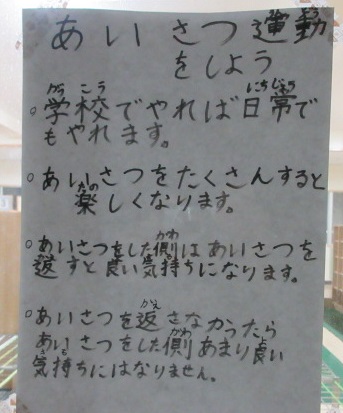 あいさつ運動
をしよう
○学校でやれば日常で
もやれます。
○あいさつをたくさんすると
楽しくなります。
○あいさつをした側はあいさつを
返すと良い気持ちになります。
○あいさつを返さなかったら
あいさつをした側あまり良い
気持ちにはなりません。